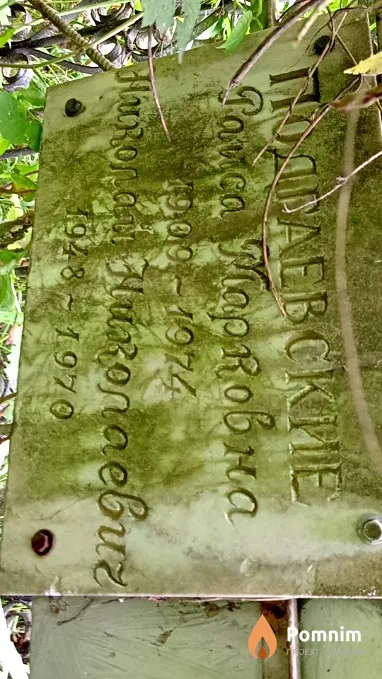 ПОДГАЕВСКИЕ
Раиса Марковна
1909-1974
Николай Николаевич
1948-1970
Pomnim